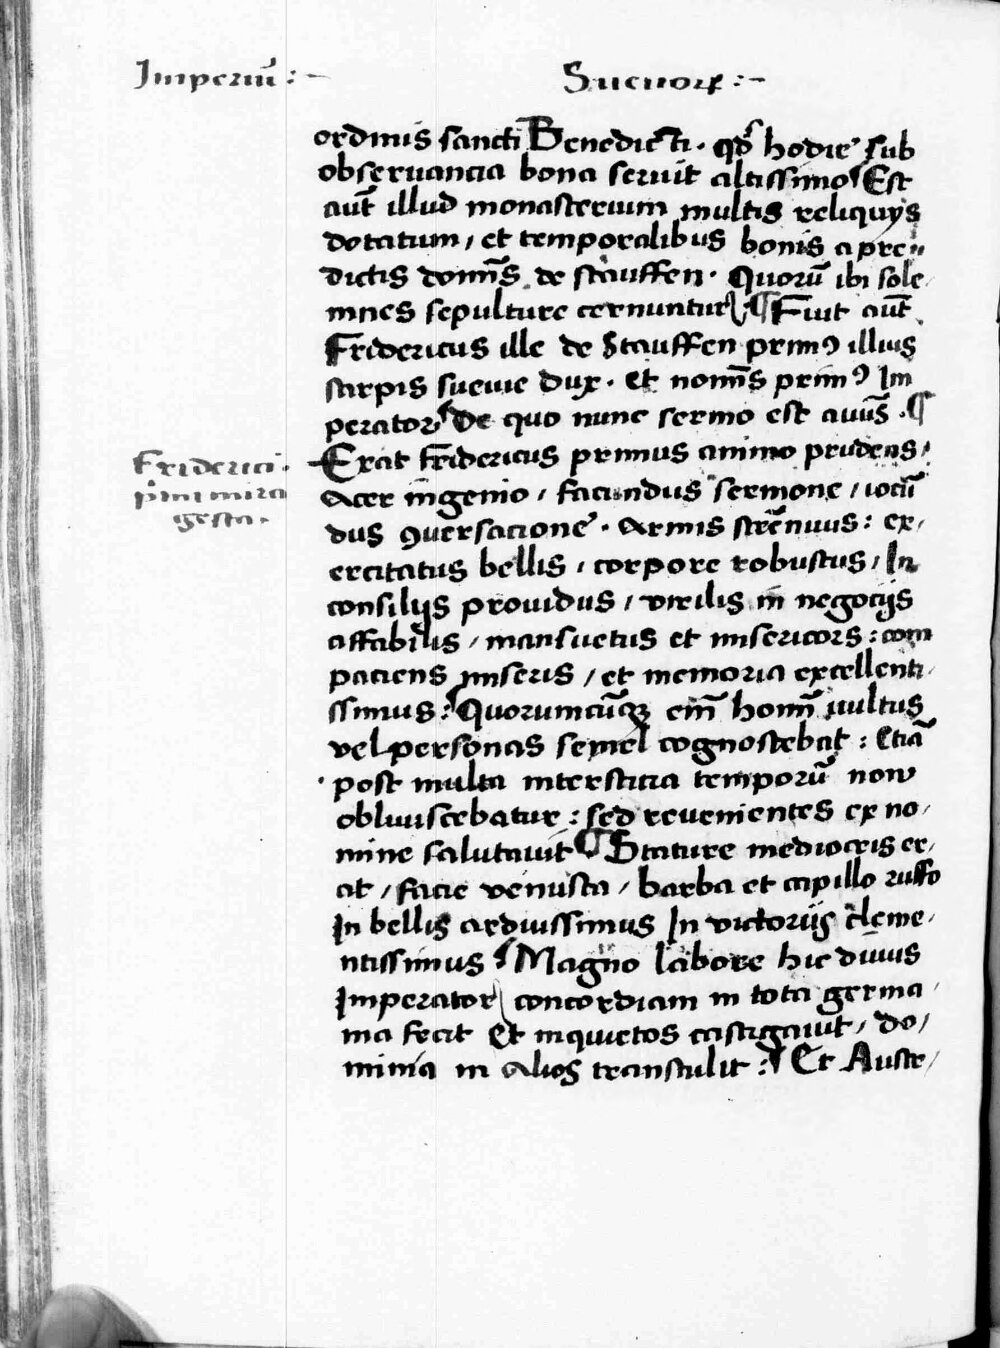 Imperiū :~ Sueuoꝝ :~
ordinis sancti Benedicti. qd̕ hodie sub
obseruancia bona seruit altissimo Est
aut̄ illud monasterium multis reliquijs
dotatum / et temporalibus bonis a pre„
dictis domīs de stauffen. Quorū ibi sole-
mnes sepulture cernuntur ¶ Fuit aut̄
Fridericus ille de Stauffen primꝰ illius
stirpis sueuie dux. et nomīs primꝰ Im
perator De quo nunc sermo est auūs. ¶
Friderici.
pⁱmi mira
gesta.
Erat Fridericus primus animo prudens /
Acer ingenio / facundus sermone / iocū
dus ꝯuersacione. Armis strēnuus : ex/
ercitatus bellis / corpore robustus / In
consilijs prouidus / virilis in negocijs
affabilis / mansuetus et misericors : com
paciens miseris / et memoria excellenti-
ssimus : Quorumcūqꝫ em̄ homī uultus
vel personas semel cognoscebat : Etiā
post multa interstitia temporū non
obliuiscebatur : sed reuenientes ex no-
mine salutauit ¶ Stature mediocris er/
at / facie venusta / barba et capillo ruffo
In bellis arduissimus In victorijs cleme-
ntissimus Magno labore hic diuus
Imperator concordiam in tota germa-
nia fecit Et inquietos castigauit / do/
minia in alios transtulit : Et Auste/